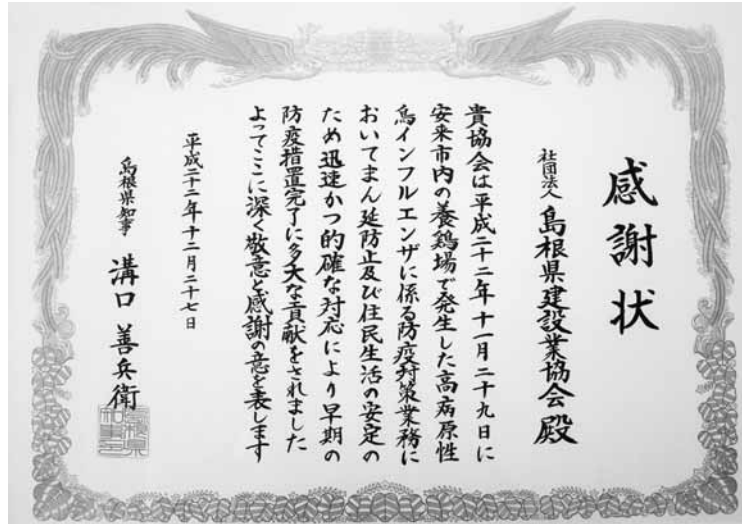 感謝状
社団法人 島根県建設業協会 殿
貴協会は平成二十二年十一月二十九日に
安来市内の養鶏場で発生した高病原性
鳥インフルエンザに係る防疫対策業務に
おいてまん延防止及び住民生活の安定の
ため迅速かつ的確な対応により早期の
防疫措置完了に多大な貢献をされました
よってここに深く敬意と感謝の意を表します
平成二十二年十二月二十七日
島根県知事 溝口 善兵衛